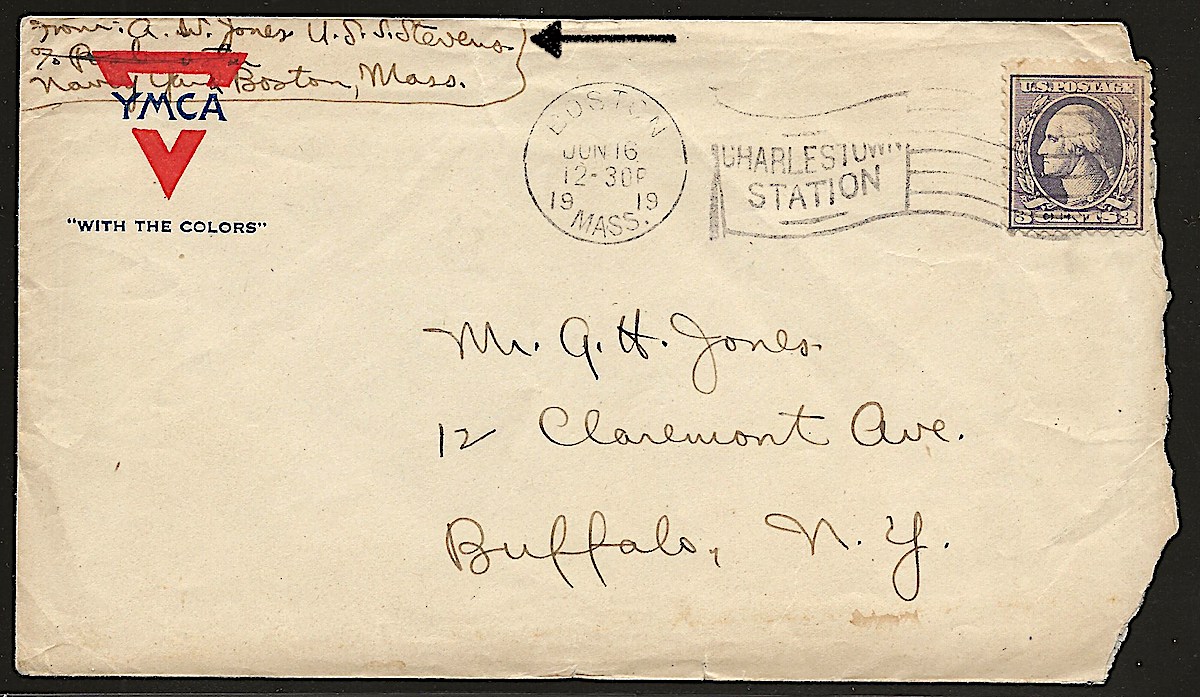 From: A. W. Jones U.S.S. Stevens
Navy Yard Boston, Mass.
YMCA
"WITH THE COLORS"
BOSTON
JUN 16
12-30P
19 19
MASS.
CHARLESTOWN
STATION
U.S. POSTAGE
3 CENTS 3
Mr. A. H. Jones
12 Claremont Ave.
Buffalo, N. Y.